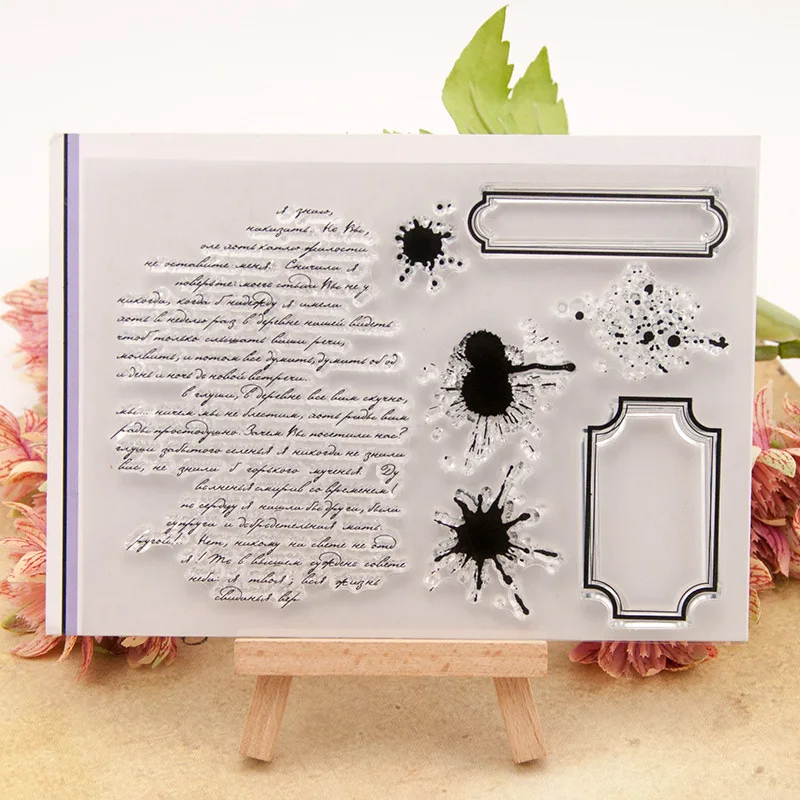 я знаю,
наказать. Но Вы,
оле хоть каплю жалости
не оставите меня. Сначала я
поверьте: моего стыда Вы не у
никогда, когда б надежду я имела
хоть в неделю раз в деревне нашей видеть
чтоб только слышать ваши речи,
молвить, и потом все думать, думать об од
и день и ночь до новой встречи.
в глуши, в деревне все вам скучно,
мы... ничем мы не блестим, хоть рады вам
рады простодушно. Зачем Вы посетили нас?
глуши забытого селенья я никогда не знала
вас, не знала б горького мученья. Ду
волненья смирив со временем!
по сердцу я нашла бы друга, была
супруга и добродетельная мать.
ругой! Нет, никому на свете не отд
я! То в высшем суждено совете
неба: я твоя; вся жизнь
свиданья вер